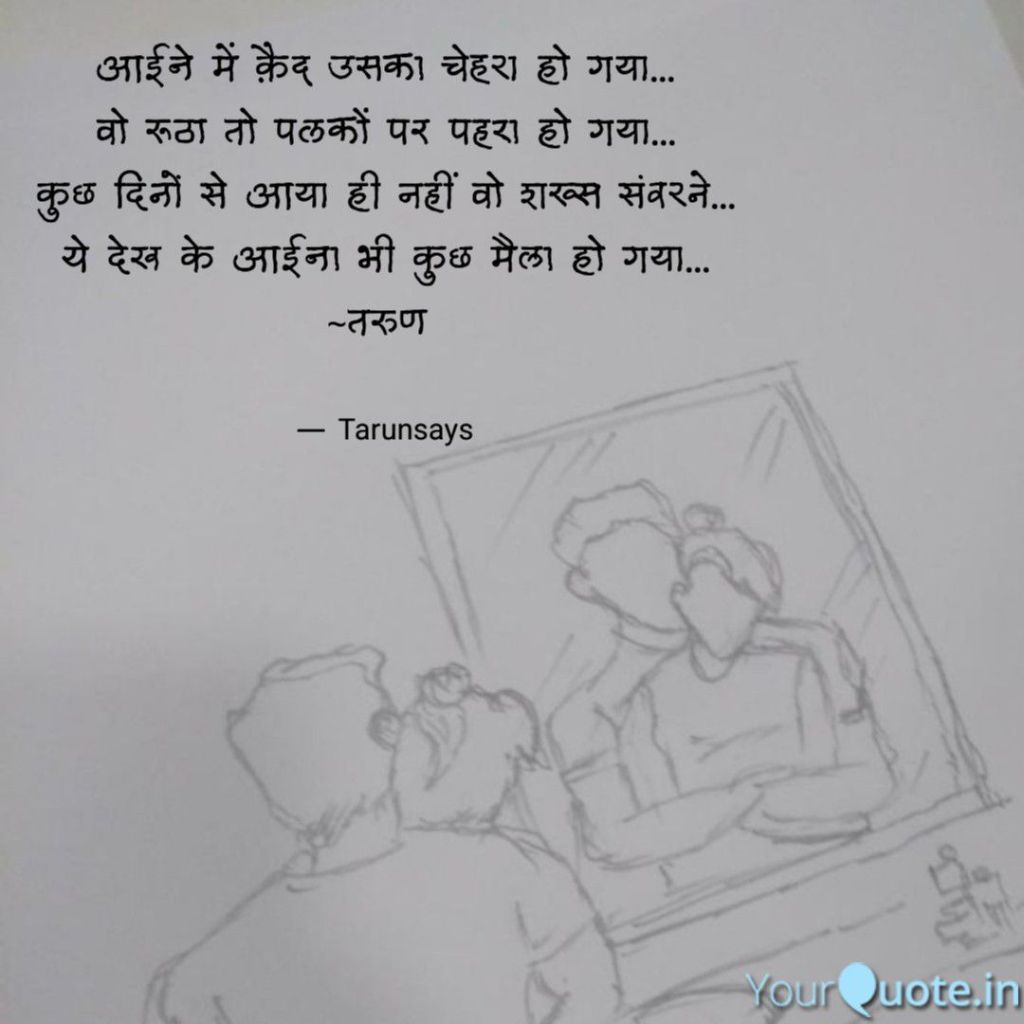 आईने में क़ैद उसका चेहरा हो गया...
वो रूठा तो पलकों पर पहरा हो गया...
कुछ दिनों से आया ही नहीं वो शख्स संवरने...
ये देख के आईना भी कुछ मैला हो गया...
~तरुण
— Tarunsays
YourQuote.in